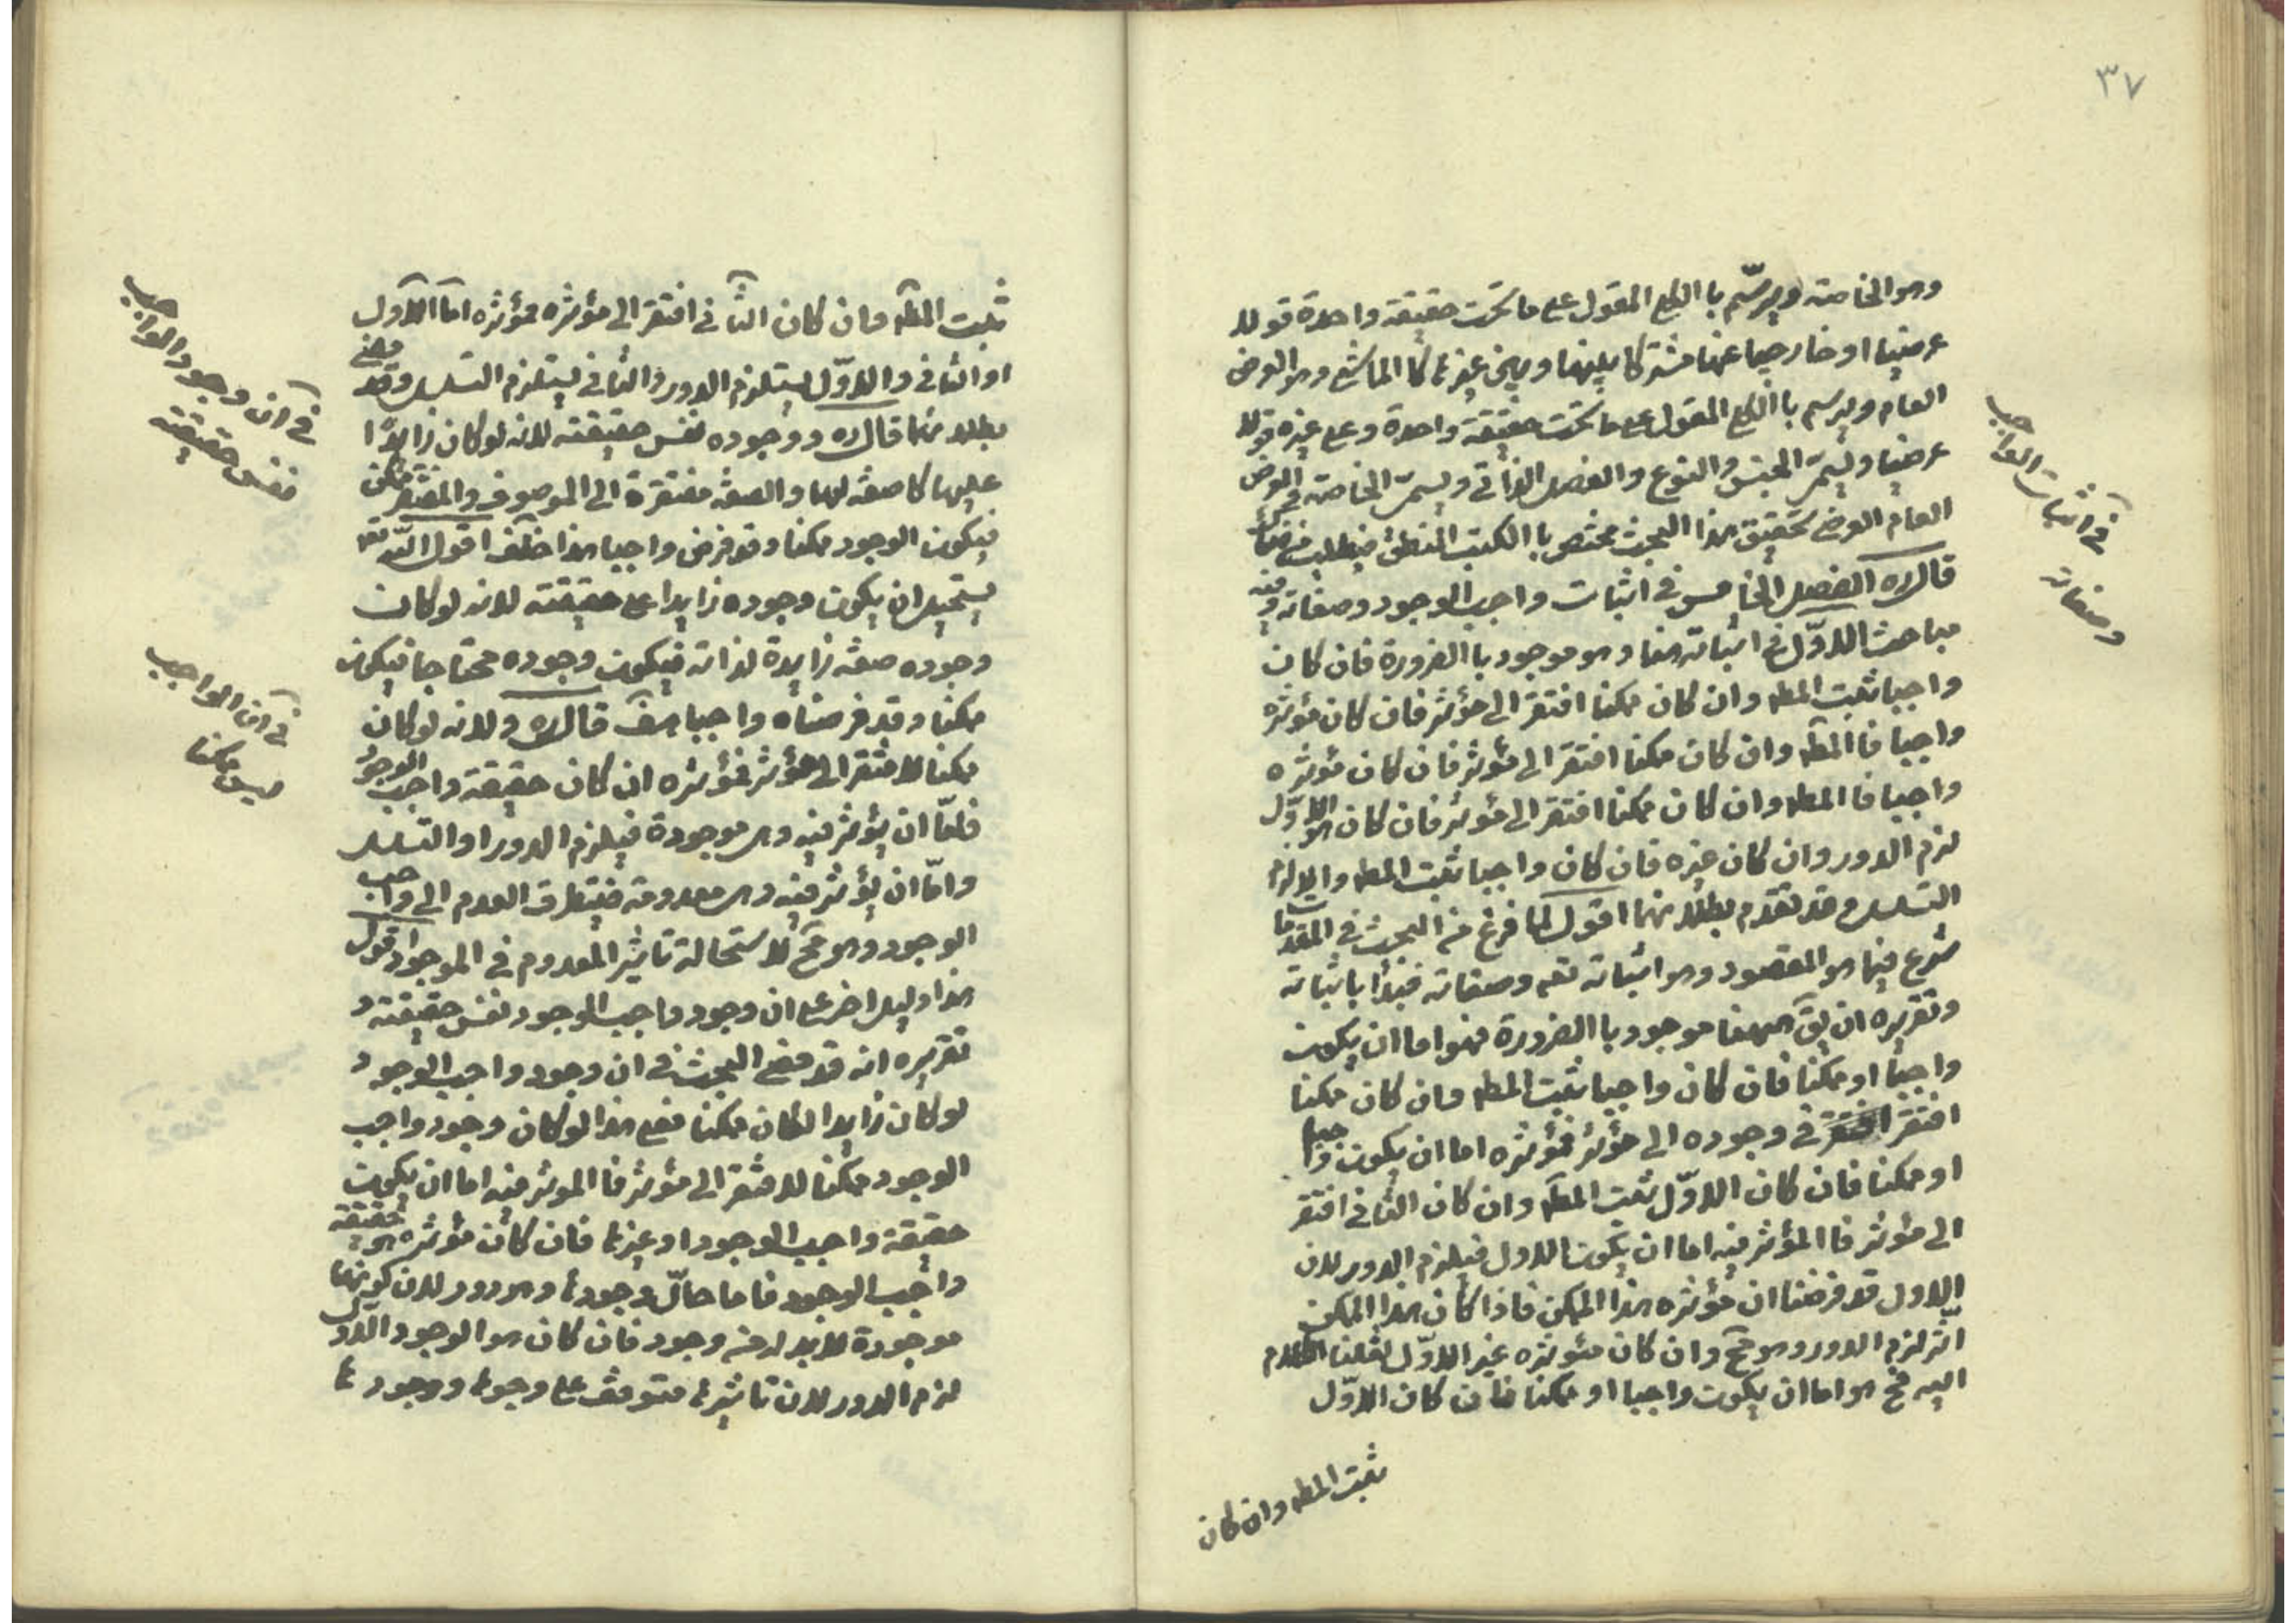 ٣٧
وهو الخاصة ويرسّم باالكلي المقول على ما تحت حقيقة واحدة قولا
عرضيا او خارجيا عنها مشتركا بينهما وبين غيرها كاالماشي وهو العرض
العام ويرسم باالكلي المقول على ما تحت حقيقة واحدة وعلى غيره قولا
عرضيا ويسمّى الجنس والنوع والفصل الذاتي ويسمّى الخاصة والعرض
العام العرضي تحقيق هذا البحث مختص باالكتب المنطقي فيطلب من
قال ره الفصل الخامس في اثبات واجب الوجود وصفاته وفيه
مباحث الاوّل في اثباته هنا وهو موجود باالضرورة فان كان
واجبا ثبت المطه وان كان ممكنا افتقر الى مؤثر فان كان مؤثره
واجبا فاالمطه وان كان ممكنا افتقر الى مؤثر فان كان مؤثره
واجبا فاالمطه وان كان ممكنا افتقر الى مؤثر فان كان هو الاوّل
لزم الدور وان كان غيره فان كان واجبا ثبت المطه والا لزم
التسلسل وقد تقدم بطلانهما اقول لما فرغ من البحث في المقدمات
شرع فيما هو المقصود وهو اثباته تعه وصفاته فبدأ باثباته
وتقريره ان يق ههنا موجود باالضرورة فهو اما ان يكون
واجبا او ممكنا فان كان واجبا ثبت المطه وان كان ممكنا
افتقر في وجوده الى مؤثر فمؤثره اما ان يكون واجبا
او ممكنا فان كان الاوّل ثبت المطه وان كان الثاني افتقر
الى مؤثر فاالمؤثر فيه اما ان يكون الاول فيلزم الدور لان
الاول قد فرضنا ان مؤثره هذا الممكن فاذا كان هذا الممكن
اثر لزم الدور وهو مح وان كان مئوثره غير الاوّل نقلنا الكلام
اليه فح هو اما ان يكون واجبا او ممكنا فان كان الاوّل
ثبت المطه وان كان
في اثبات الواجب
وصفاته
ثبت المطه وان كان الثاني افتقر الى مؤثره فمؤثره اما الاول
او الثاني والاوّل يستلزم الدور والثاني يستلزم التسلسل وقد مضى
بطلانهما قال ره ووجوده نفس حقيقته لانه لو كان زايدًا
عليها كا صفة لها والصفة مفتقرة الى الموصوف والمفتقر ممكن
فيكون الوجود ممكنا وقد فرض واجبا هذا خلف اقول الله تعه
يستحيل ان يكون وجوده زايدا على حقيقته لانه لو كان
وجوده صفة زايدة لذاته فيكون وجوده محتاجا فيكون
ممكنا وقد فرضناه واجبا هف قال ره ولانه لو كان
ممكنا لافتقر الى مؤثر فمؤثره ان كان حقيقة واجب الوجود
فامّا ان يؤثر فيه وهى موجودة فيلزم الدور او التسلسل
وامّا ان يؤثر فيه وهى معدومة فيتطرق العدم الى واجب
الوجود وهو مح لاستحالة تاثير المعدوم في الموجود اقول
هذا دليل اخر على ان وجود واجب الوجود نفس حقيقته و
تقريره انه قد مضى البحث في ان وجود واجب الوجود
لو كان زايدا لكان ممكنا فعلى هذا لو كان وجود واجب
الوجود ممكنا لافتقر الى مؤثر فاالموثر فيه اما ان يكون
حقيقة واجب الوجود او غيرها فان كان مؤثره هو حقيقة
واجب الوجود فاما حال وجودها وهو دور لان كونها
موجودة لابد له من وجود فان كان هو الوجود الاول
لزم الدور لان تاثيرها متوقف على وجودها ووجودها
في ان وجود الواجب
نفس حقيقته
في ان الواجب
ليس ممكنا